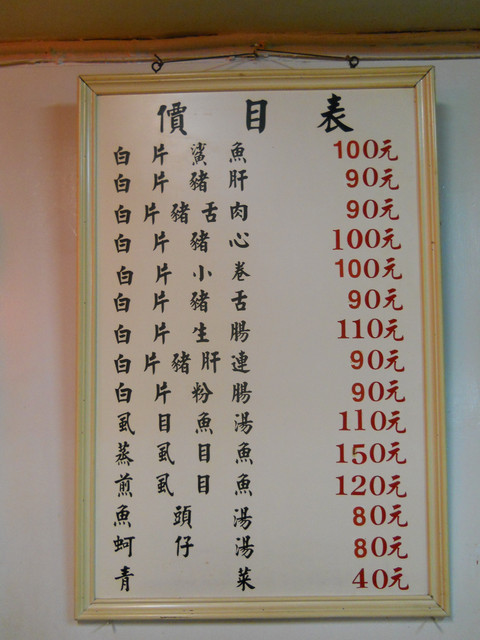 價目表
白片鯊魚 100元
白片豬肝 90元
白片豬舌肉 90元
白片豬心 100元
白片小卷 100元
白片豬舌 90元
白片生腸 110元
白片豬肝連 90元
白片粉腸 90元
虱目魚湯 110元
蒸虱目魚 150元
煎虱目魚 120元
魚頭湯 80元
蚵仔湯 80元
青菜 40元